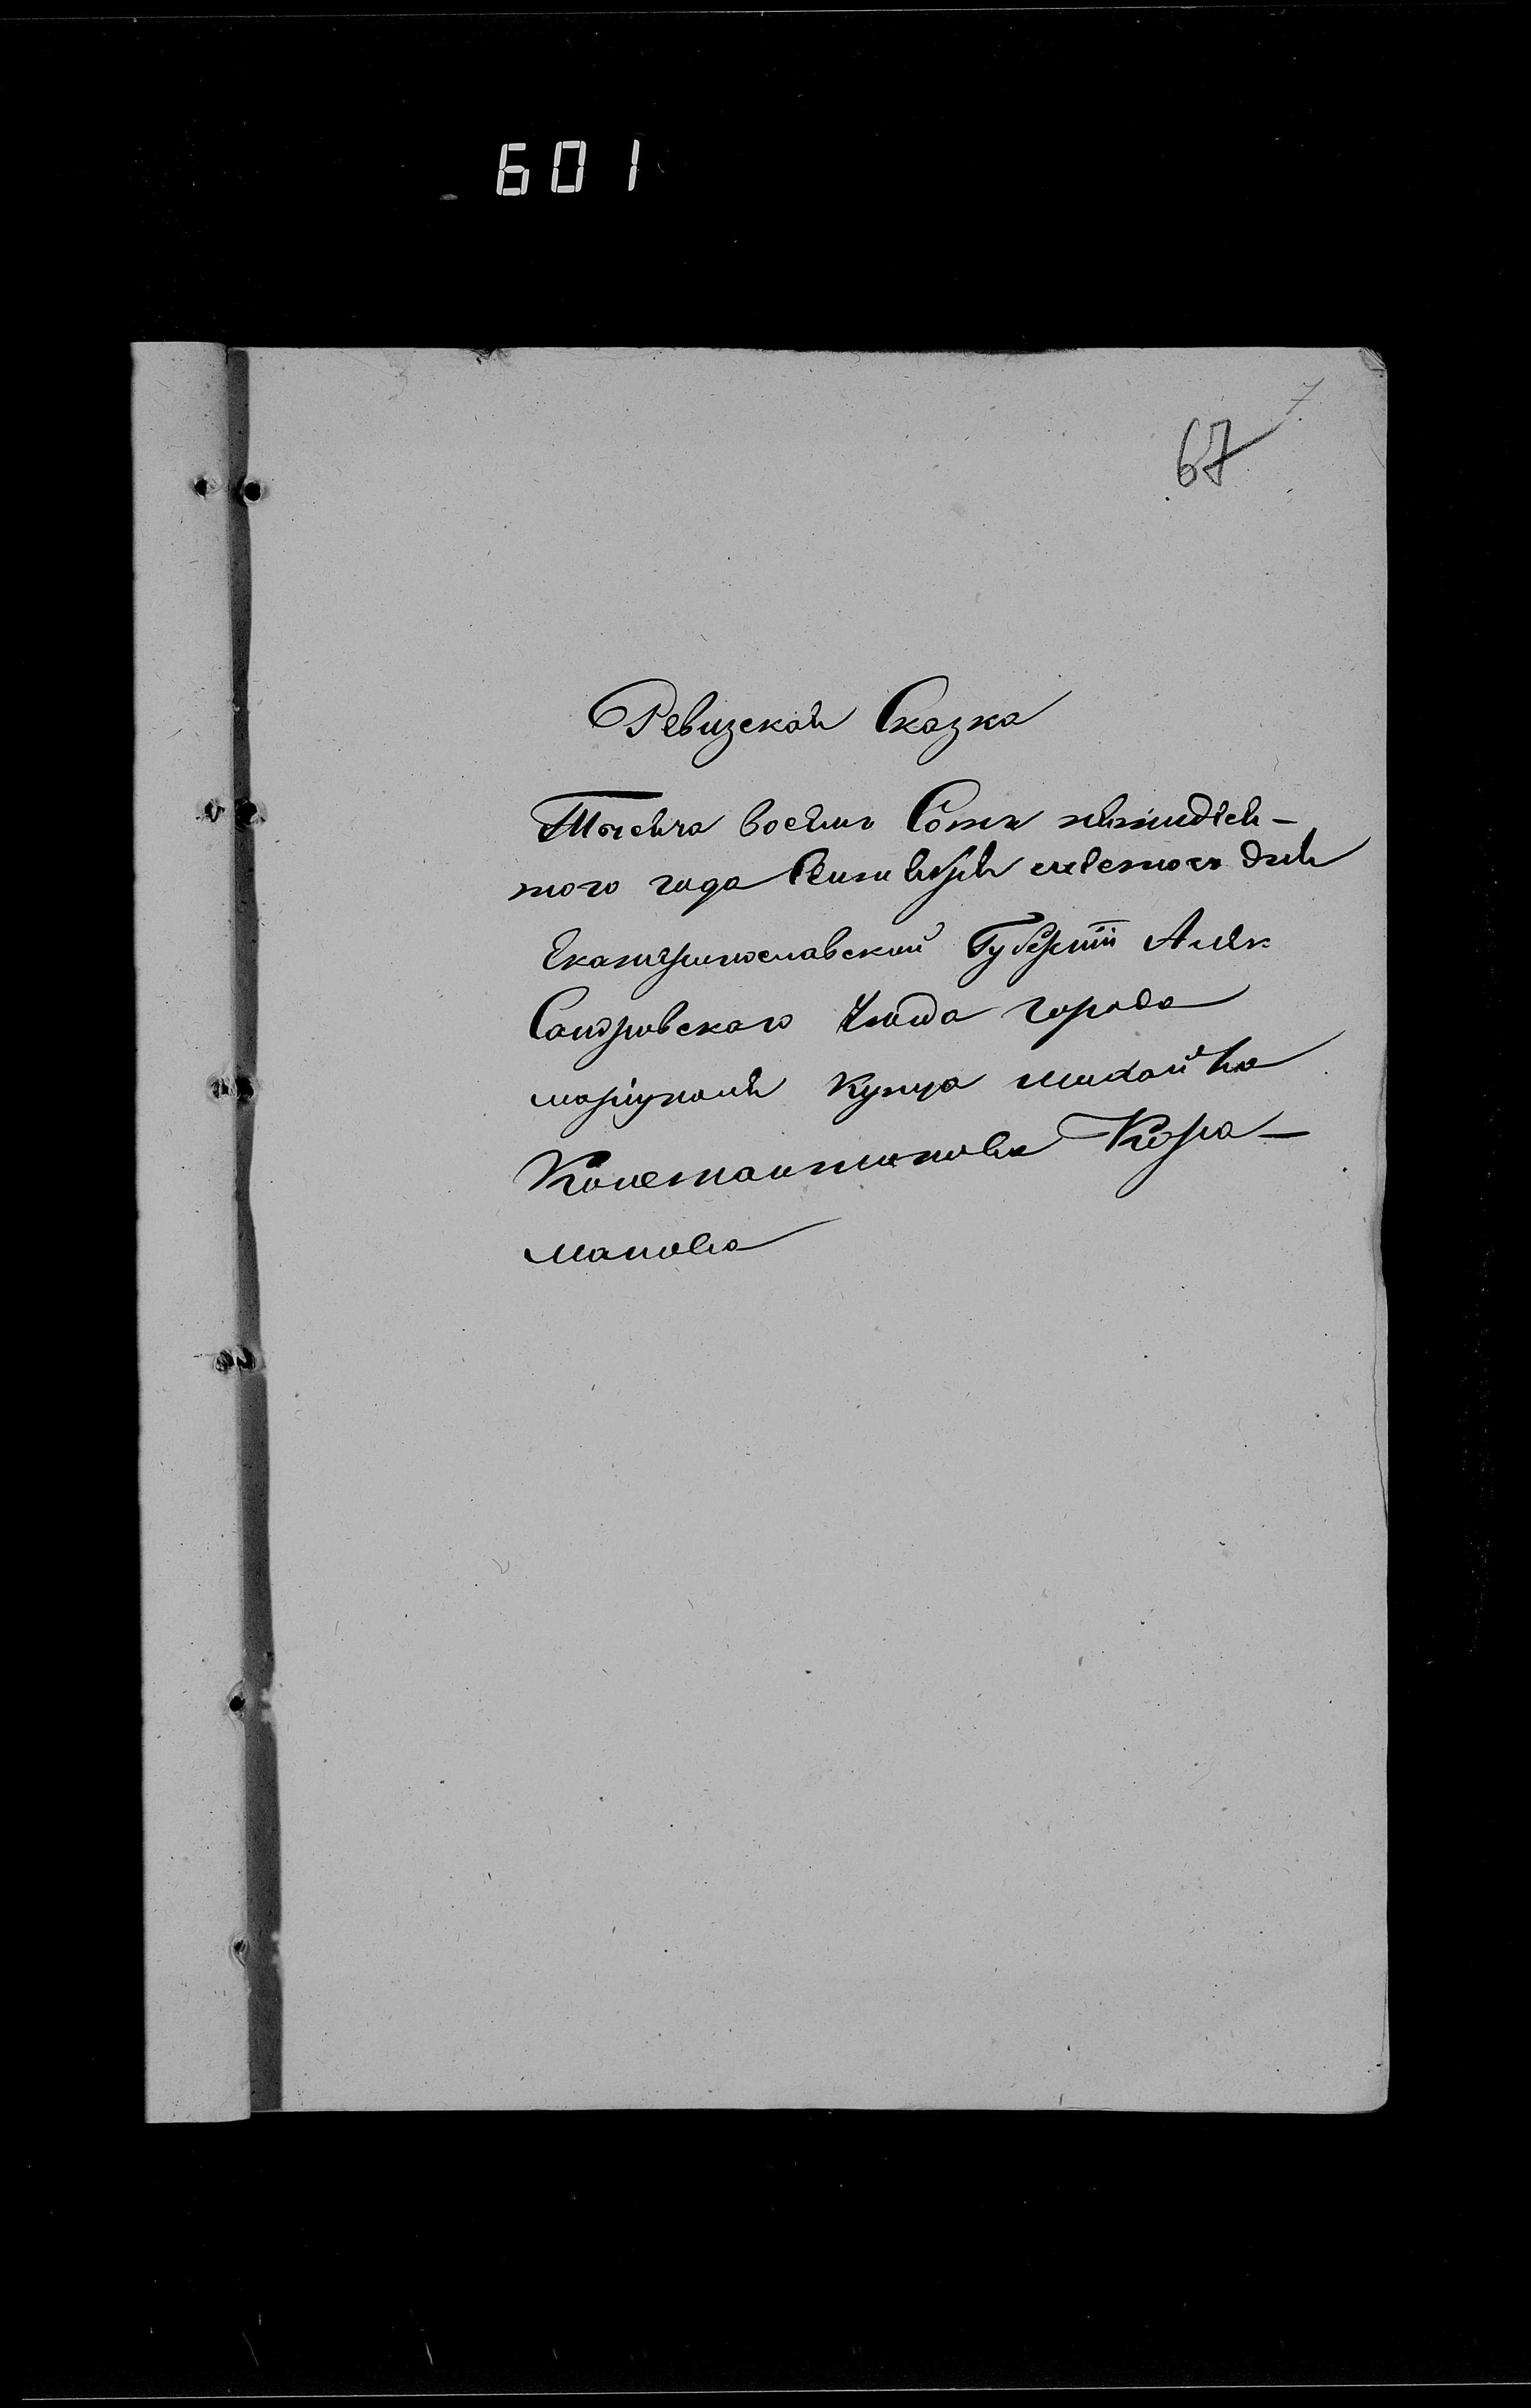 601
7
67
Ревизская Сказка
Тысеча восемь Сотъ пятидеся-
того года Октября шестого дня
Екатеринославской Губернїи Алек
Сандровского Уезда города
мариуполя Купца михайла
Константинова Кара-
манова